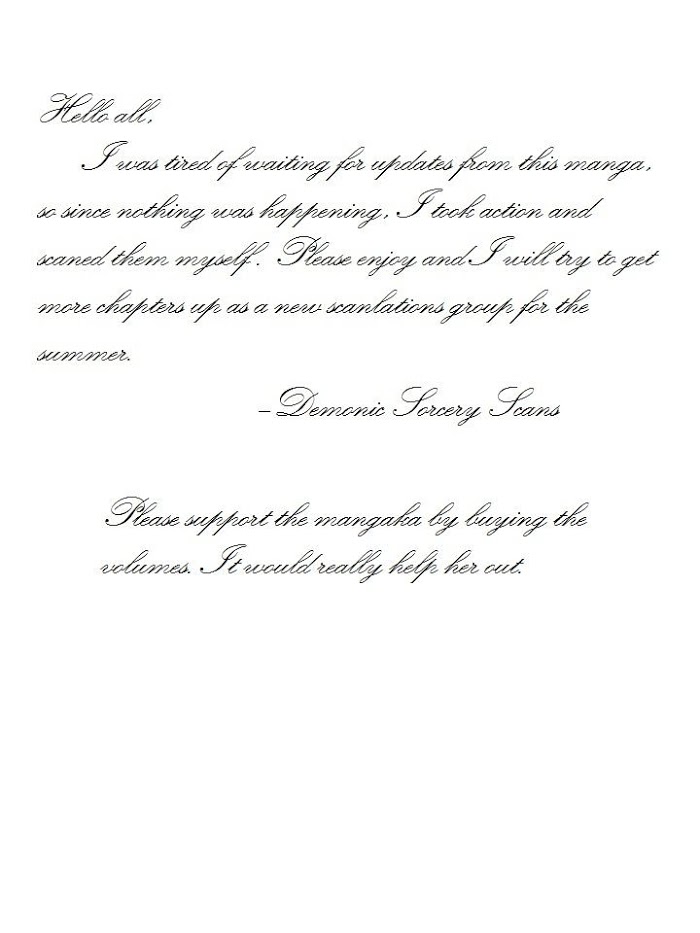 Hello all,
I was tired of waiting for updates from this manga,
so since nothing was happening, I took action and
scaned them myself. Please enjoy and I will try to get
more chapters up as a new scanlations group for the
summer.
-Demonic Sorcery Scans
Please support the mangaka by buying the
volumes. It would really help her out.